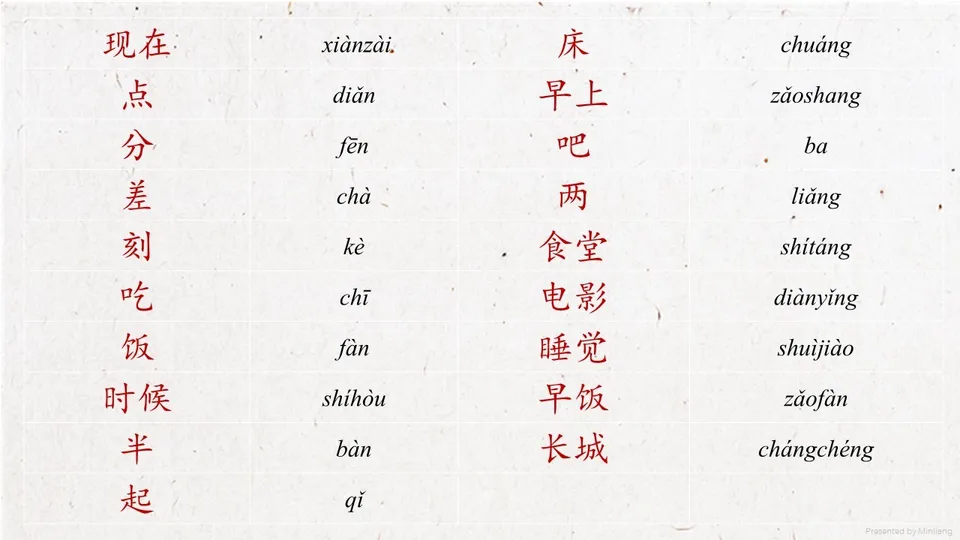 现在 xiànzài 床 chuáng
点 diǎn 早上 zǎoshang
分 fēn 吧 ba
差 chà 两 liǎng
刻 kè 食堂 shítáng
吃 chī 电影 diànyǐng
饭 fàn 睡觉 shuìjiào
时候 shíhòu 早饭 zǎofàn
半 bàn 长城 chángchéng
起 qǐ
Presented by Minliang